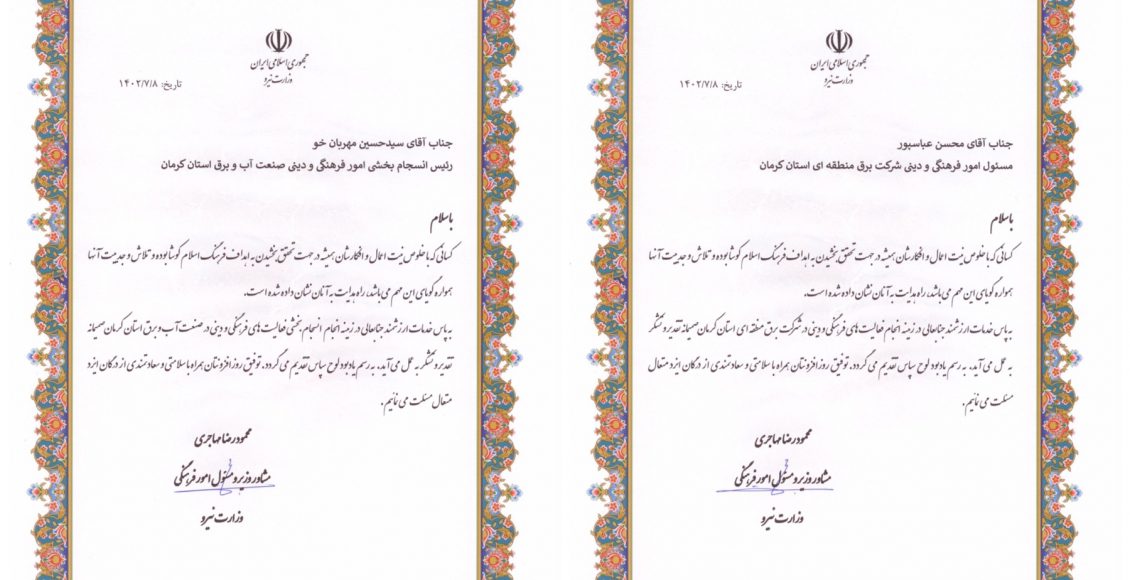 جمهوری اسلامی ایران
وزارت نیرو
تاریخ: ۱۴۰۲/۷/۸
جناب آقای محسن عباسپور
مسئول امور فرهنگی و دینی شرکت برق منطقه ای استان کرمان
باسلام
کسانی که با خلوص نیت اعمال و افکارشان همیشه در جهت تحقق بخشیدن به اهداف فرهنگ اسلام کوشا بوده و تلاش و جدیت آنها
همواره گویای این مهم می باشد، راه هدایت به آنان نشان داده شده است.
به پاس خدمات ارزشمند جنابعالی در زمینه انجام فعالیت های فرهنگی و دینی در شرکت برق منطقه ای استان کرمان صمیمانه تقدیر و تشکر
به عمل می آید، به رسم یادبود لوح سپاس تقدیم می گردد. توفیق روزافزونتان همراه با سلامتی و سعادتمندی از درگاه ایزد متعال
مسئلت می نمایم.
محمودرضا مهاجری
مشاور وزیر و مسئول امور فرهنگی
وزارت نیرو
جمهوری اسلامی ایران
وزارت نیرو
تاریخ: ۱۴۰۲/۷/۸
جناب آقای سیدحسین مهربان خو
رئیس انسجام بخشی امور فرهنگی و دینی صنعت آب و برق استان کرمان
باسلام
کسانی که با خلوص نیت اعمال و افکارشان همیشه در جهت تحقق بخشیدن به اهداف فرهنگ اسلام کوشا بوده و تلاش و جدیت آنها
همواره گویای این مهم می باشد، راه هدایت به آنان نشان داده شده است.
به پاس خدمات ارزشمند جنابعالی در زمینه انجام انسجام بخشی فعالیت های فرهنگی و دینی در صنعت آب و برق استان کرمان صمیمانه
تقدیر و تشکر به عمل می آید، به رسم یادبود لوح سپاس تقدیم می گردد. توفیق روزافزونتان همراه با سلامتی و سعادتمندی از درگاه ایزد
متعال مسئلت می نمایم.
محمودرضا مهاجری
مشاور وزیر و مسئول امور فرهنگی
وزارت نیرو